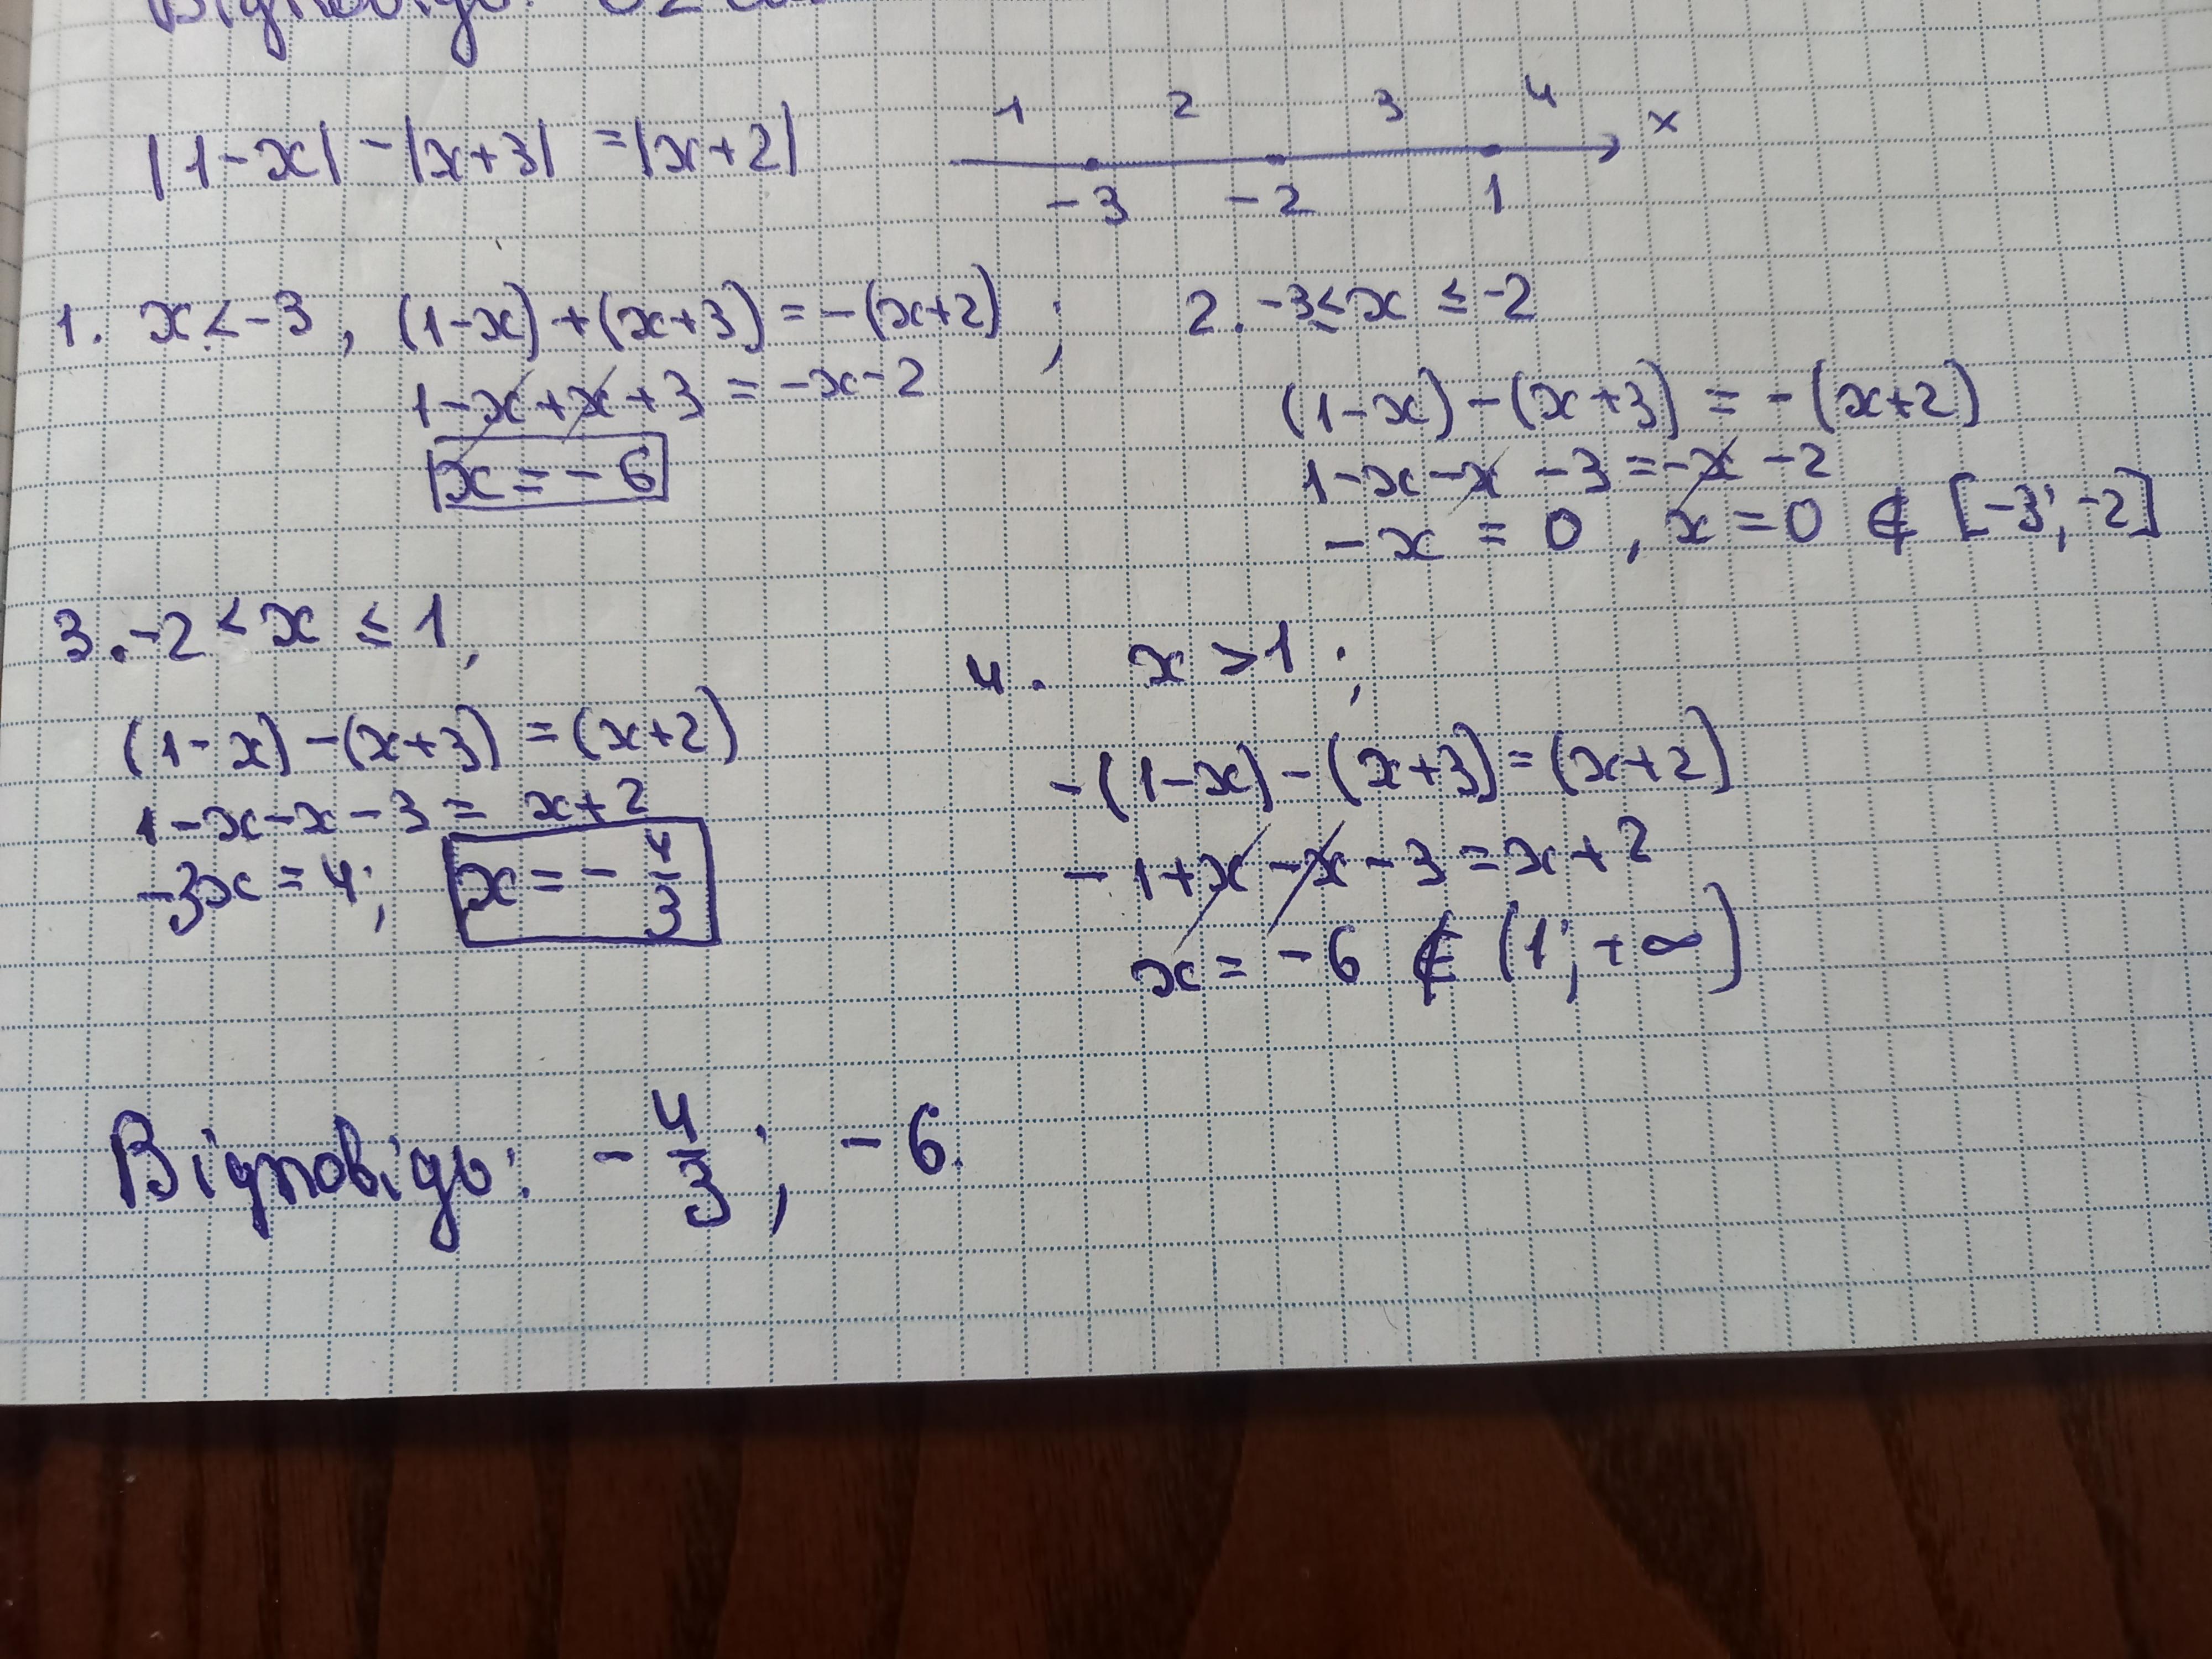 Відповідь:
|1-x| - |x+3| = |x+2|
1 2 3 4 x
-3 -2 1
1. x < -3, (1-x) + (x+3) = -(x+2) ;
1-x+x+3 = -x-2
x = -6
2. -3 ≤ x ≤ -2
(1-x) - (x+3) = -(x+2)
1-x-x-3 = -x-2
-x = 0, x = 0 ∉ [-3; -2]
3. -2 < x ≤ 1,
(1-x) - (x+3) = (x+2)
1-x-x-3 = x+2
-3x = 4; x = -4/3
4. x > 1 ;
-(1-x) - (x+3) = (x+2)
-1+x-x-3 = x+2
x = -6 ∉ (1; +∞)
Відповідь: -4/3; -6.